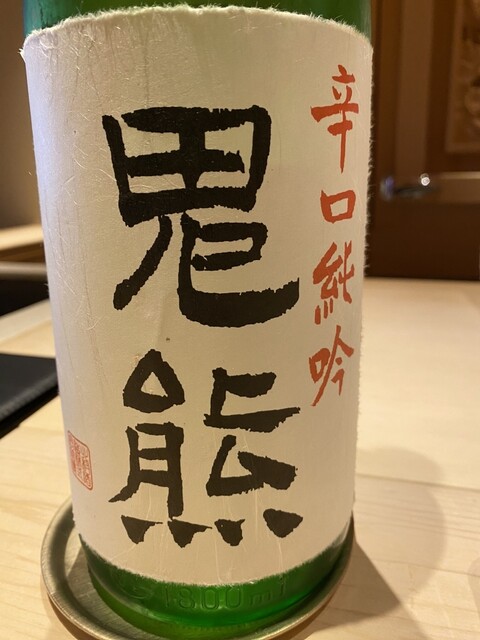 辛口純吟
鬼熊
1800ml